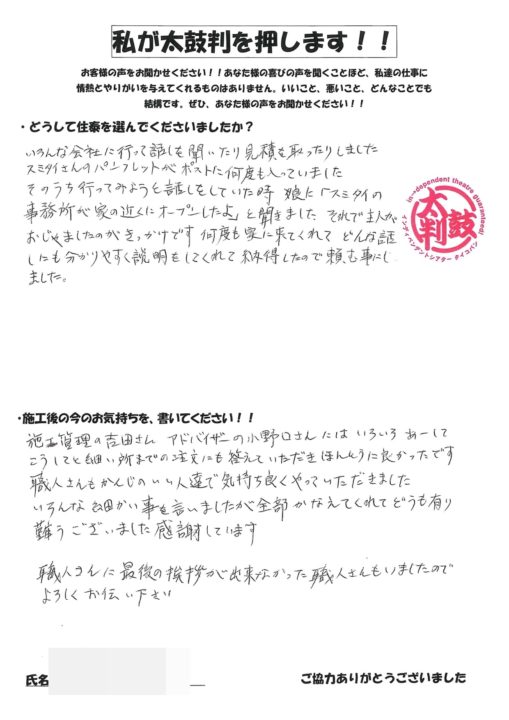 私が太鼓判を押します！！
お客様の声をお聞かせください！！あなた様の喜びの声を聞くことほど、私達の仕事に
情熱とやりがいを与えてくれるものはありません。いいこと、悪いこと、どんなことでも
結構です。ぜひ、あなた様の声をお聞かせください！！
・どうして住泰を選んでくださいましたか？
いろんな会社に行って話しも聞いたり見積も取ったりしました
スミタイさんのパンフレットがポストに何度も入っていました
そのうち行ってみようと話しをしていた時 娘に「スミタイの
事務所が家の近くにオープンしたよ」と聞きました それで主人が
おじゃましたのがきっかけです 何度も家に来てくれて どんな話
しにも分かりやすく説明もしてくれて 納得したので頼む事にし
ました。
in→dependent theatre guaranteed!
太鼓判
インディペンデントシアター タイコバン
・施工後の今のお気持ちを、書いてください！！
施工管理の吉田さん アドバイザーの小野口さんには いろいろ あーして
こうしてと細い所までの注文にも答えていただき ほんとうに良かったです
職人さんもかんじのいい人達で気持ち良くやっていただきました
いろんな細かい事を言いましたが全部かなえてくれてどうも有り
難うございました 感謝しています
職人さんに最後の挨拶が出来なかった職人さんもいましたので
よろしくお伝い下さい
氏名
ご協力ありがとうございました